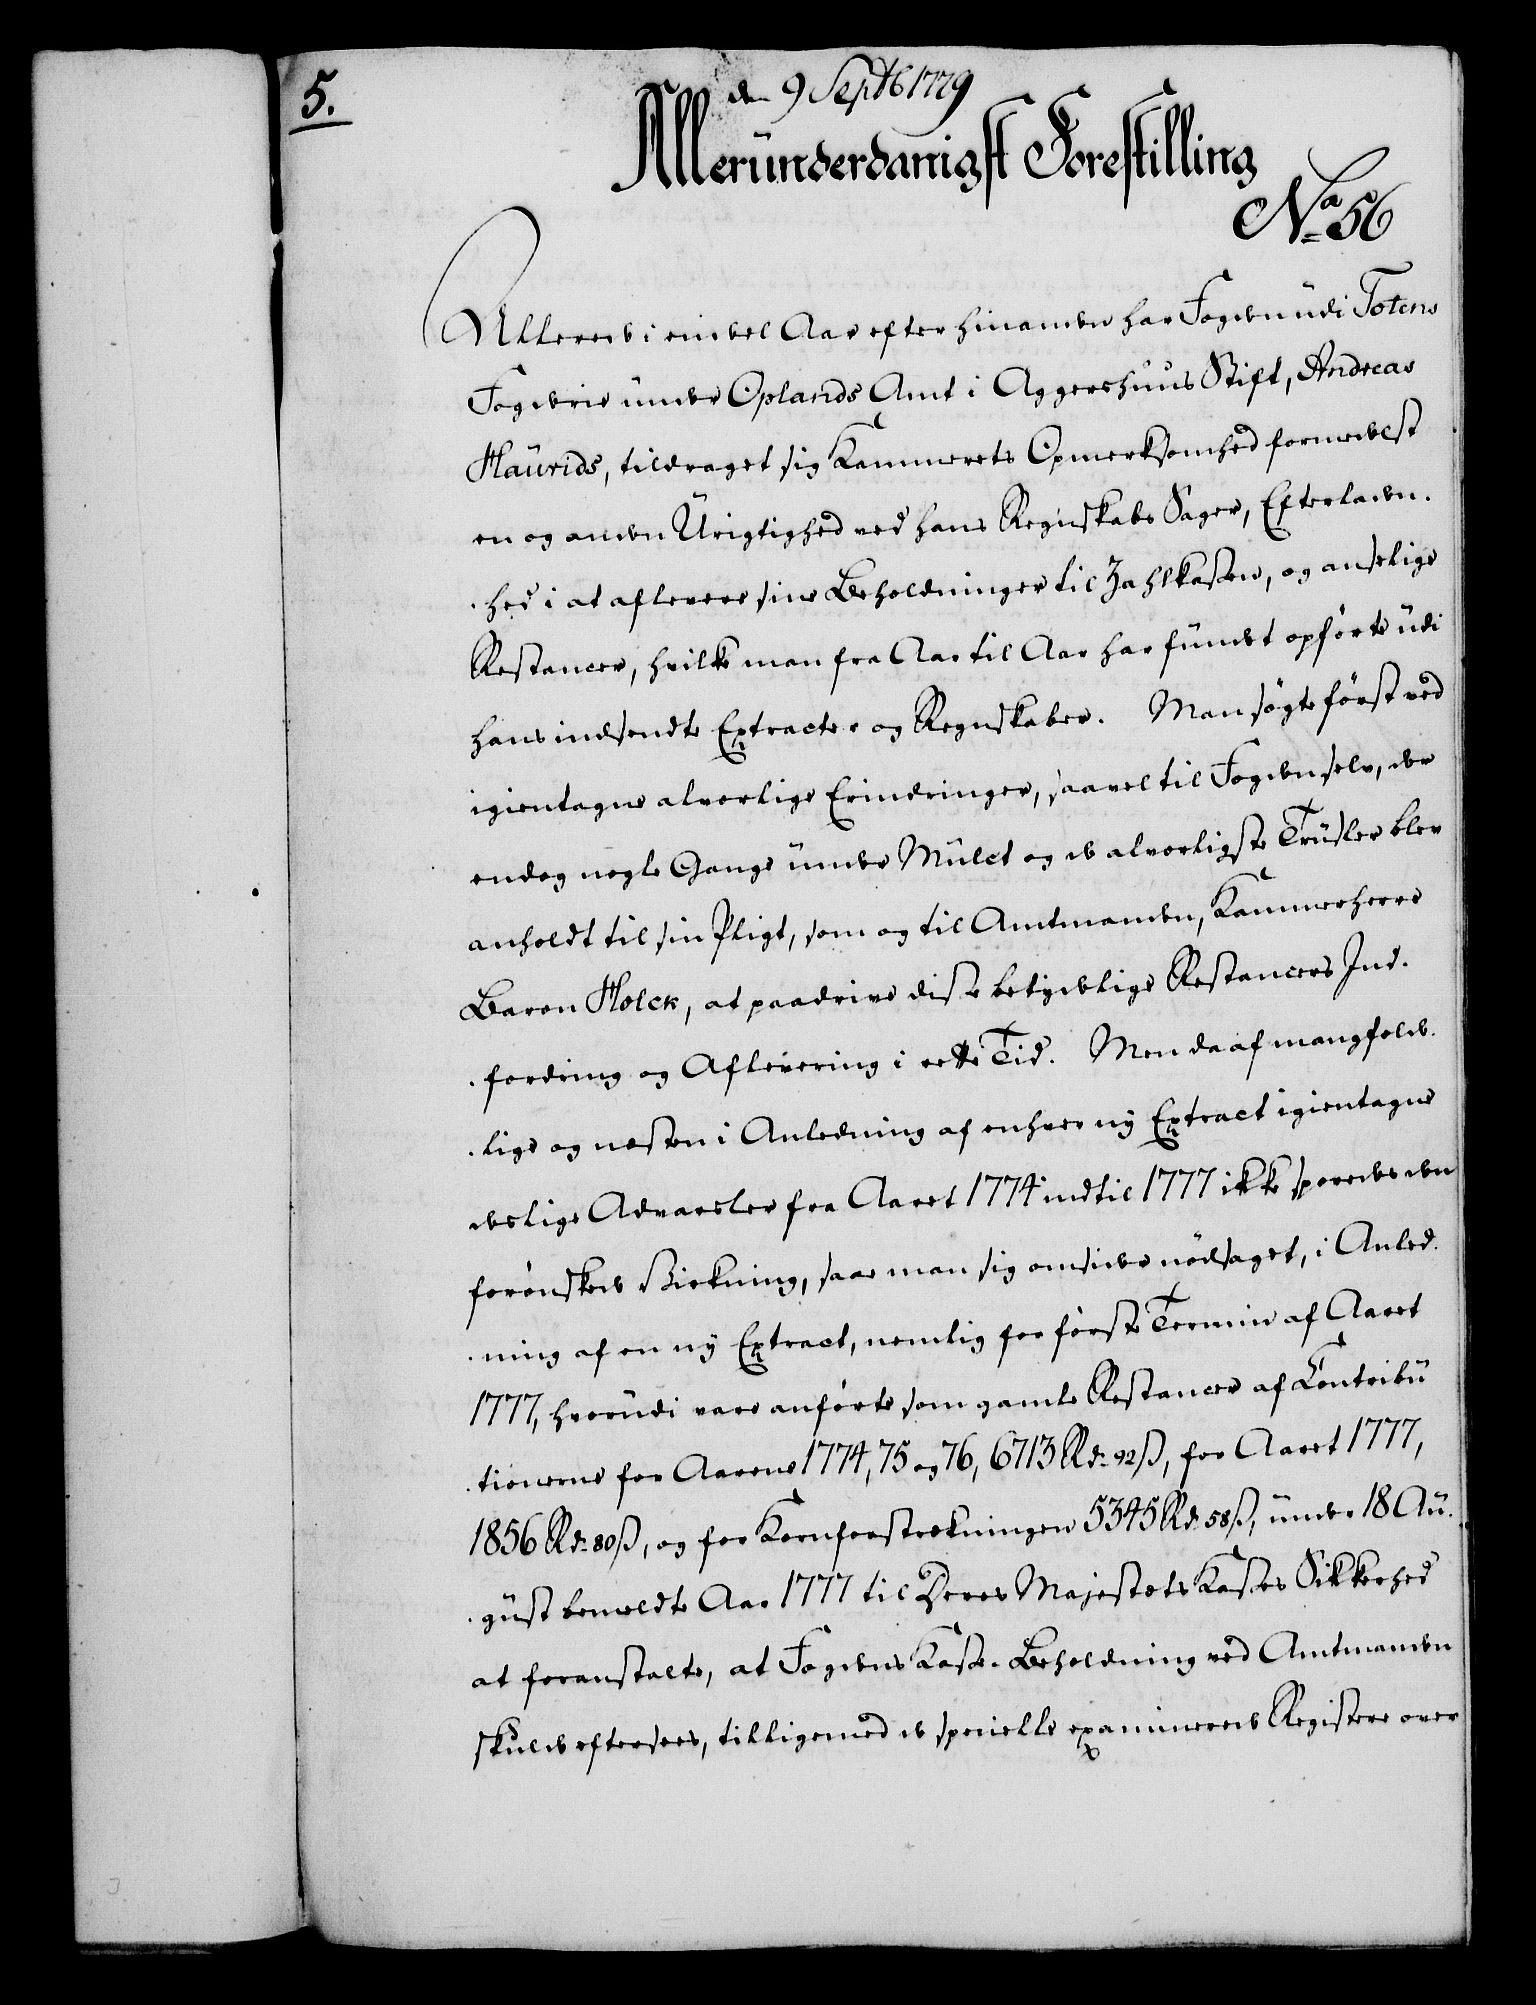 5.
den 9 Septb 1779
Alleründerdanigst Forestilling
No 56
Allerede i en deel Aar efter hinanden har Fogden üdi Totens
Fogderie ünder Oplands Amt i Aggershuus Stift, Andreas
Haürids, tildraget sig Kammerets Opmerksomhed formedelst
en og anden Ürigtighed ved hans Regnskabs Sager, Efterladen-
-hed i at aflevere sine Beholdninger til Zahlkassen, og anselige
Restancer, hvilke man fra Aar til Aar har fündet opførte üdi
hans indsendte Extracter og Regnskaber. Man søgte først ved
igientagne alvorlige Erindringer, saavel til Fogden selv, der
endog nogle Gange ünder Mülct og de alvorligste Trüsler blev
anholdt til sin Pligt, som og til Amtmanden, Kammerherre
Baron Holck, at paadrive disse betydelige Restancers Ind-
-fordring og Aflevering i rette Tid. Men da af mangfoldi-
-lige og næsten i Anledning af enhver ny Extract igientagne
deslige Advarsler fra Aaret 1774 indtil 1777 ikke sporedes den
forønskede Virkning, saae man sig omsider nødsaget, i Anled-
-ning af en ny Extract, nemlig for første Termin af Aaret
1777, hvorüdi vare anførte som gamle Restancer af Contribü
-tionerne for Aarene 1774, 75 og 76, 6713 Rd. 92 ß, for Aaret 1777,
1856 Rd. 80 ß, og for Kornforstrækningen 5345 Rd. 58 ß, ünder 18 Aü-
-güst bemeldte Aar 1777 til Deres Majestæts Kasses Sikkerhed
at foranstalte, at Fogdens Kasse-Beholdning ved Amtmanden
skulde eftersees, tilligemed de specielle examinerede Registere over